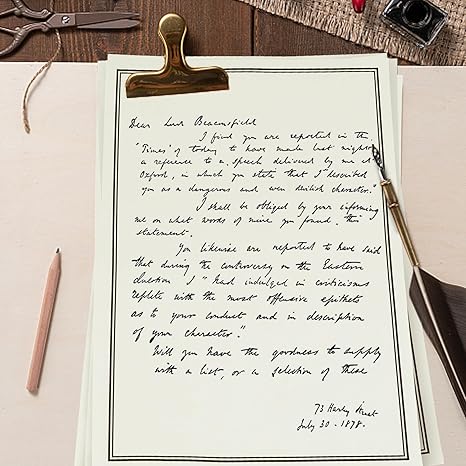 Dear Lord Beaconsfield
I find you are reported in the
"Times" of today to have made last night
a reference to a speech delivered by me at
Oxford, in which you state that I "described
you as a dangerous and even devilish character."
I shall be obliged by your informing
me on what words of mine you found this
statement.
You likewise are reported to have said
that during the controversy on the Eastern
Question I "had indulged in criticisms
replete with the most offensive epithets
as to your conduct and in description
of your character."
Will you have the goodness to supply
with a list, or a selection of these
73 Harley Street
July 30 . 1878.